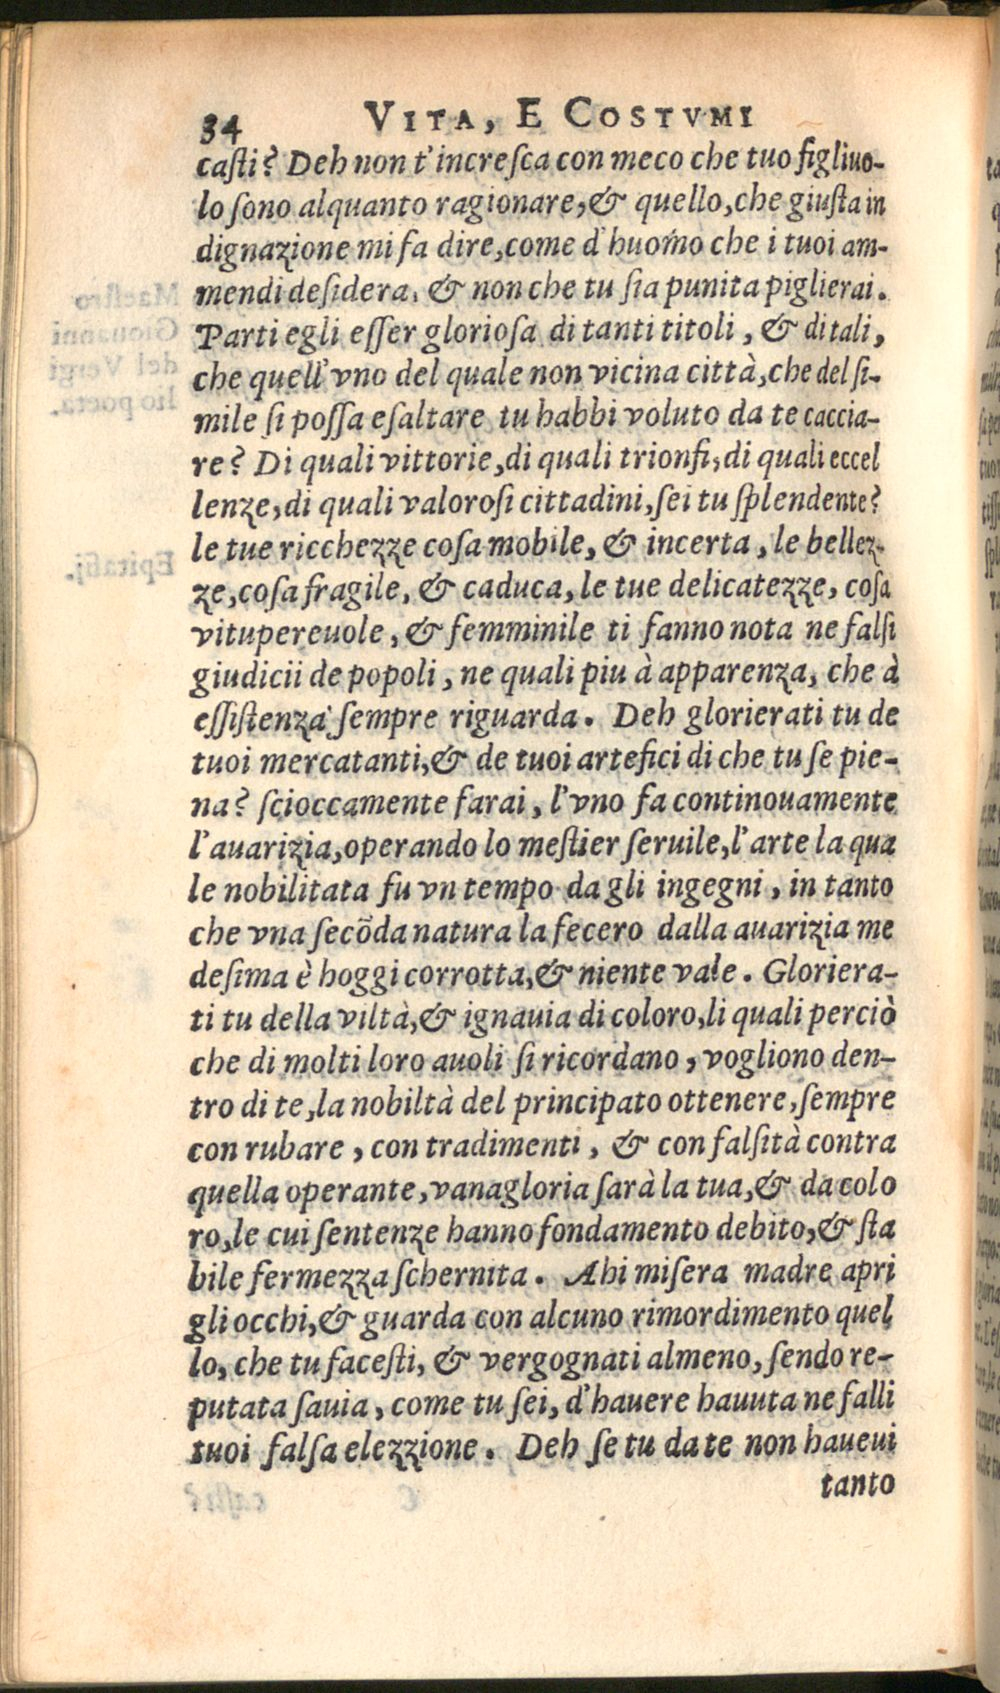 34 VITA, E COSTVMI
caſti? Deh non t'increſca con meco che tuo figliuo-
lo ſono alquanto ragionare, & quello, che giuſta in
dignazione mi fa dire, come d'huomo che i tuoi am-
mendi deſidera, & non che tu ſia punita piglierai.
Parti egli eſſer glorioſa di tanti titoli, & di tali,
che quell'vno del quale non vicina città, che del ſi-
mile ſi poſſa eſaltare tu habbi voluto da te caccia-
re? Di quali vittorie, di quali trionfi, di quali eccel
lenze, di quali valoroſi cittadini, ſei tu ſplendente?
le tue ricchezze coſa mobile, & incerta, le bellez-
ze, coſa fragile, & caduca, le tue delicatezze, coſa
vitupereuole, & femminile ti fanno nota ne falſi
giudicii de popoli, ne quali piu à apparenza, che à
eſſiſtenza ſempre riguarda. Deh glorierati tu de
tuoi mercatanti, & de tuoi artefici di che tu ſe pie-
na? ſcioccamente farai, l'vno fa continouamente
l'auarizia, operando lo meſtier ſeruile, l'arte la qua
le nobilitata fu vn tempo da gli ingegni, in tanto
che vna ſecõda natura la fecero dalla auarizia me
deſima è hoggi corrotta, & niente vale. Gloriera-
ti tu della viltà, & ignauia di coloro, li quali perciò
che di molti loro auoli ſi ricordano, vogliono den-
tro di te, la nobiltà del principato ottenere, ſempre
con rubare, con tradimenti, & con falſità contra
quella operante, vanagloria ſarà la tua, & da colo
ro, le cui ſentenze hanno fondamento debito, & ſta
bile fermezza ſchernita. Ahi miſera madre apri
gli occhi, & guarda con alcuno rimordimento quel
lo, che tu faceſti, & vergognati almeno, ſendo re-
putata ſauia, come tu ſei, d'hauere hauuta ne falli
tuoi falſa elezzione. Deh ſe tu da te non haueui
tanto